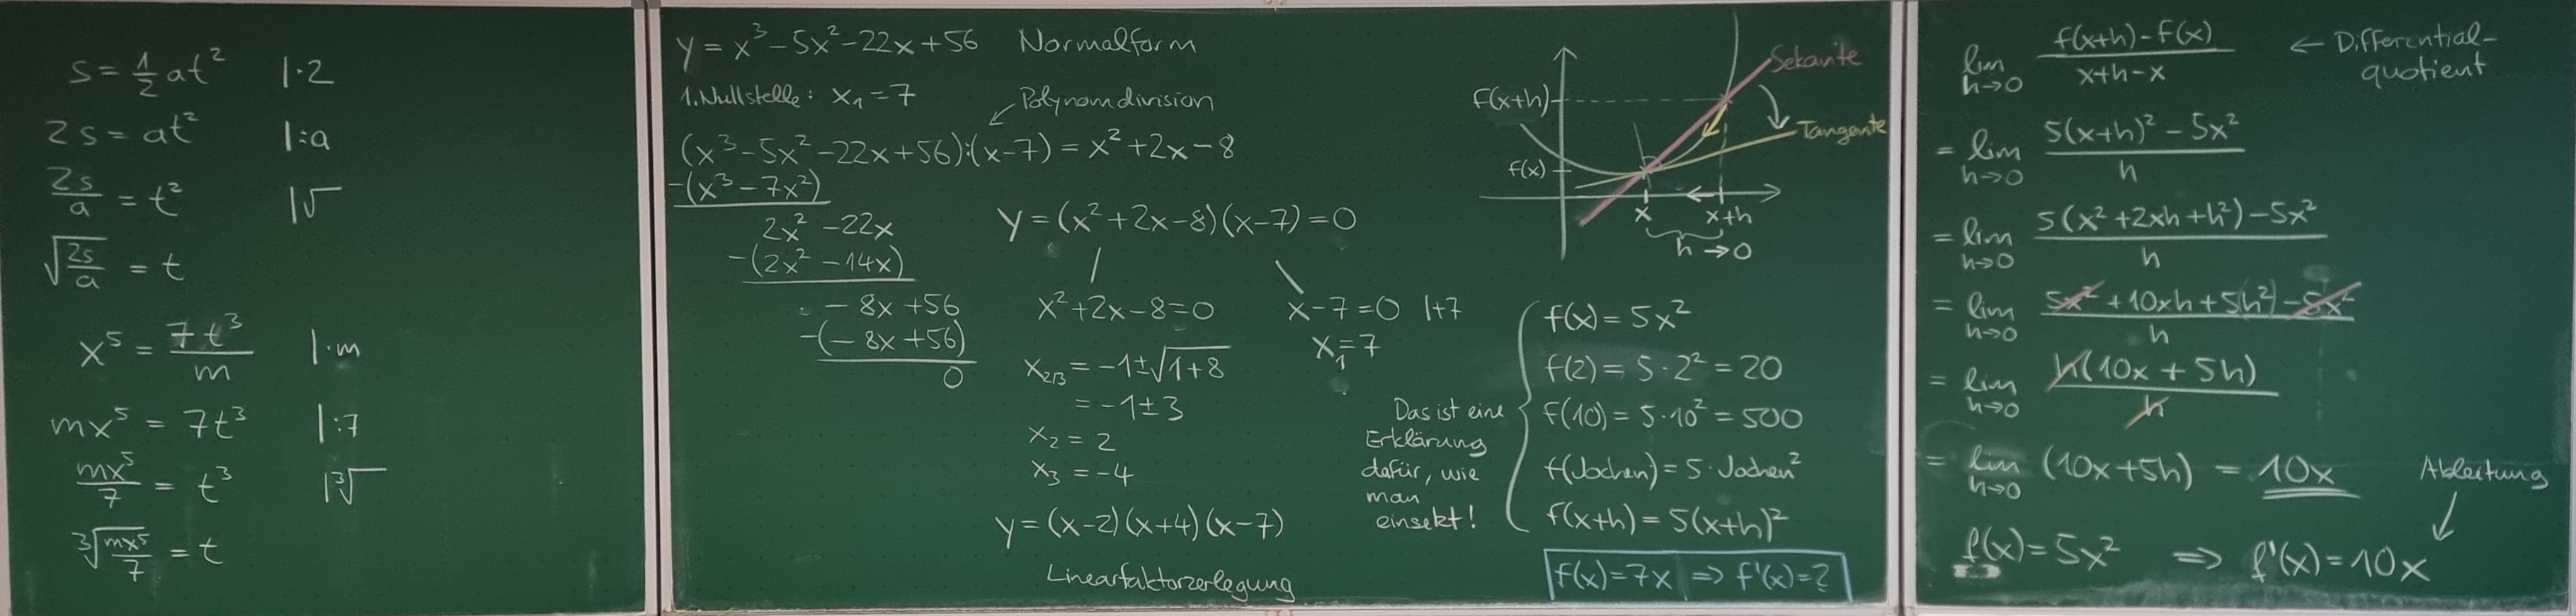 s = 1/2 at² |·2
2s = at² |:a
2s/a = t² |√
√(2s/a) = t
x⁵ = 7t³/m |·m
mx⁵ = 7t³ |:7
mx⁵/7 = t³ |³√
³√(mx⁵/7) = t
y = x³ - 5x² - 22x + 56 Normalform
1. Nullstelle: x₁ = 7
← Polynomdivision
(x³ - 5x² - 22x + 56):(x-7) = x² + 2x - 8
-(x³ - 7x²)
2x² - 22x
-(2x² - 14x)
- 8x + 56
-(- 8x + 56)
0
y = (x² + 2x - 8)(x-7) = 0
x² + 2x - 8 = 0
x₂/₃ = -1 ± √(1+8)
= -1 ± 3
x₂ = 2
x₃ = -4
x - 7 = 0 |+7
x₁ = 7
y = (x-2)(x+4)(x-7)
Linearfaktorzerlegung
Sekante
f(x+h)
Tangente
f(x)
x x+h
h → 0
Das ist eine
Erklärung
dafür, wie
man
einsekt!
f(x) = 5x²
f(2) = 5·2² = 20
f(10) = 5·10² = 500
f(Jochen) = 5·Jochen²
f(x+h) = 5(x+h)²
f(x) = 7x ⇒ f'(x) = ?
lim h→0 (f(x+h) - f(x))/(x+h-x) ← Differential-
quotient
= lim h→0 (5(x+h)² - 5x²)/h
= lim h→0 (5(x² + 2xh + h²) - 5x²)/h
= lim h→0 (5x² + 10xh + 5(h²) - 5x²)/h
= lim h→0 h(10x + 5h)/h
= lim h→0 (10x + 5h) = 10x
Ableitung
f(x) = 5x² ⇒ f'(x) = 10x